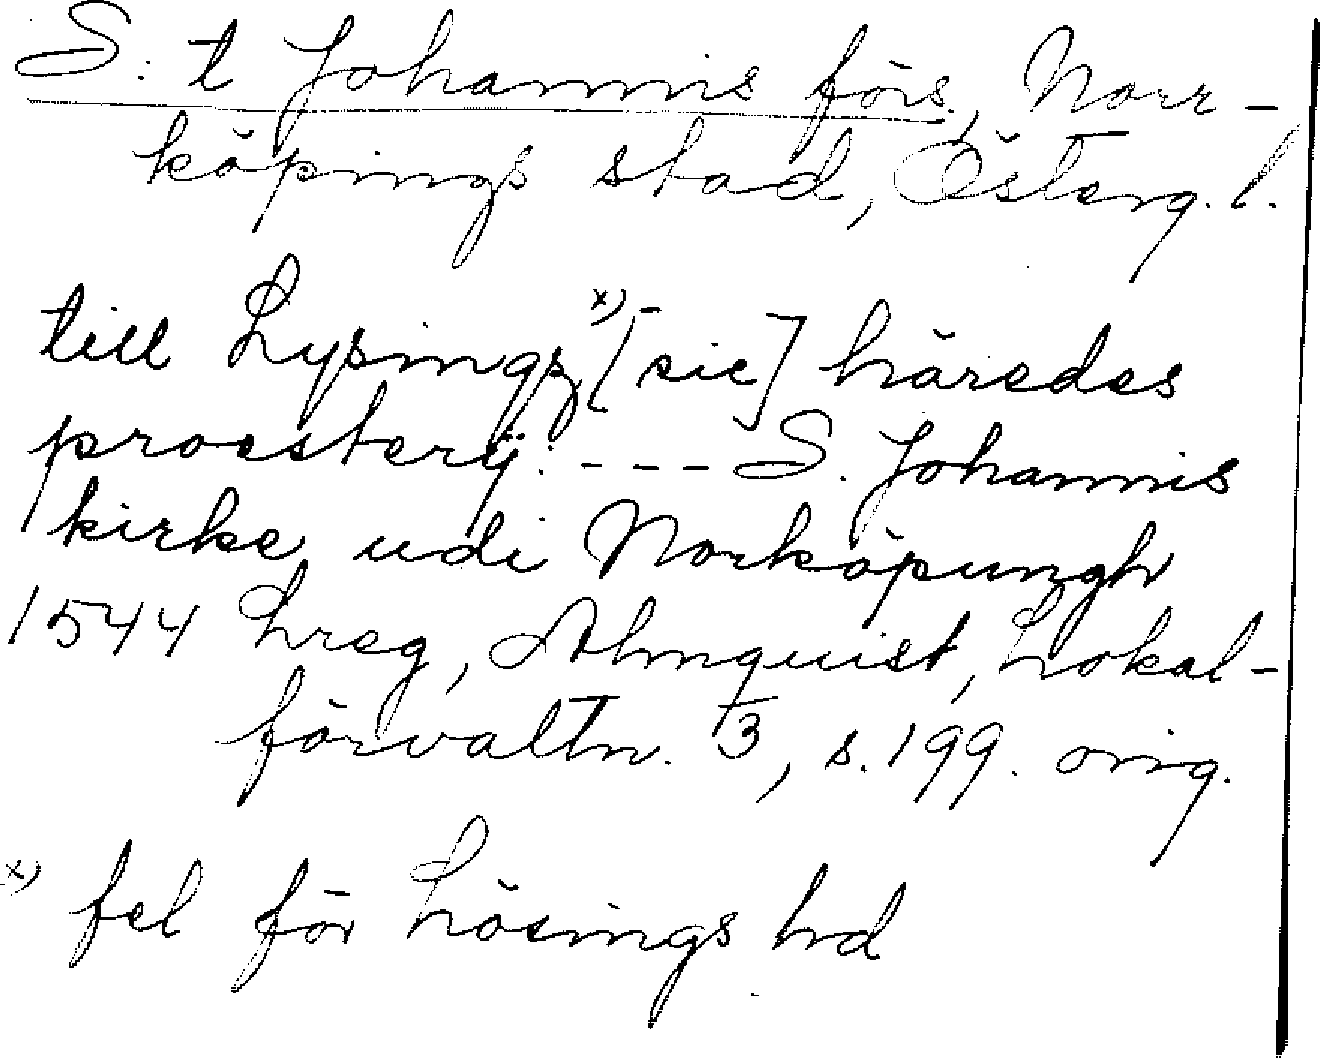 S:t Johannis förs, Norr-
köpings stad, Österg. l.
till Lysingz x) [sic] häredes
proesterij: --- S. Johannis
kirke udi Norköpungh
1544 hreg, Almquist, Lokal-
förvaltn. 3, s. 199. orig.
x) fel för Lösings hd